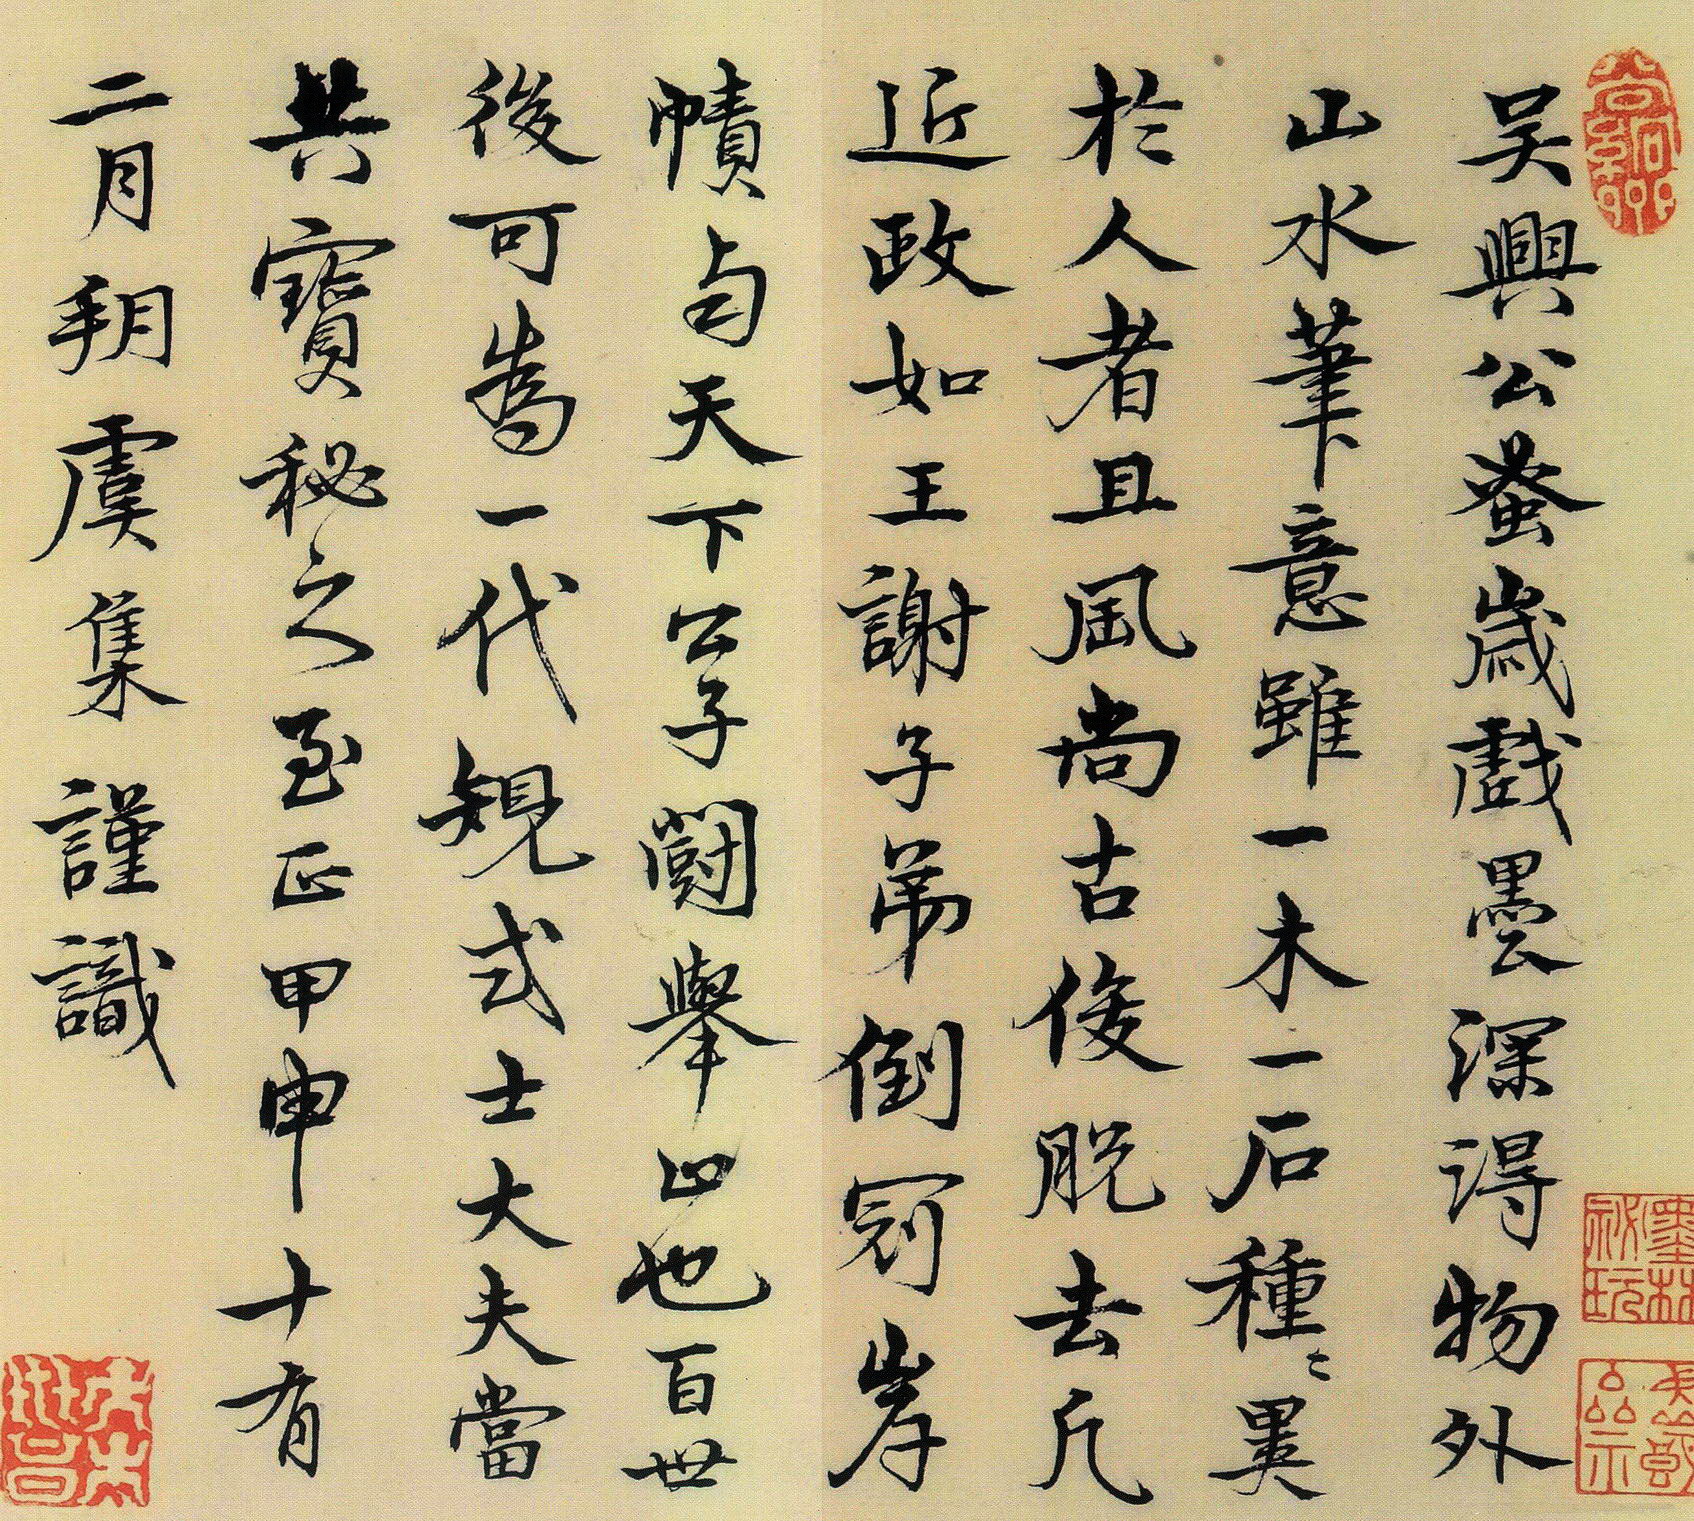 吴興公蚤歲戲墨深淂物外
山水筆意雖一木一石種〻異
於人者且風尚古俊脫去凡
近政如王謝子弟倒冠岸
幘与天下公子鬪舉止也百世
後可為一代規式士大夫當
共寶秘之至正甲申十有
二月朔虞集謹識
墨林秘玩